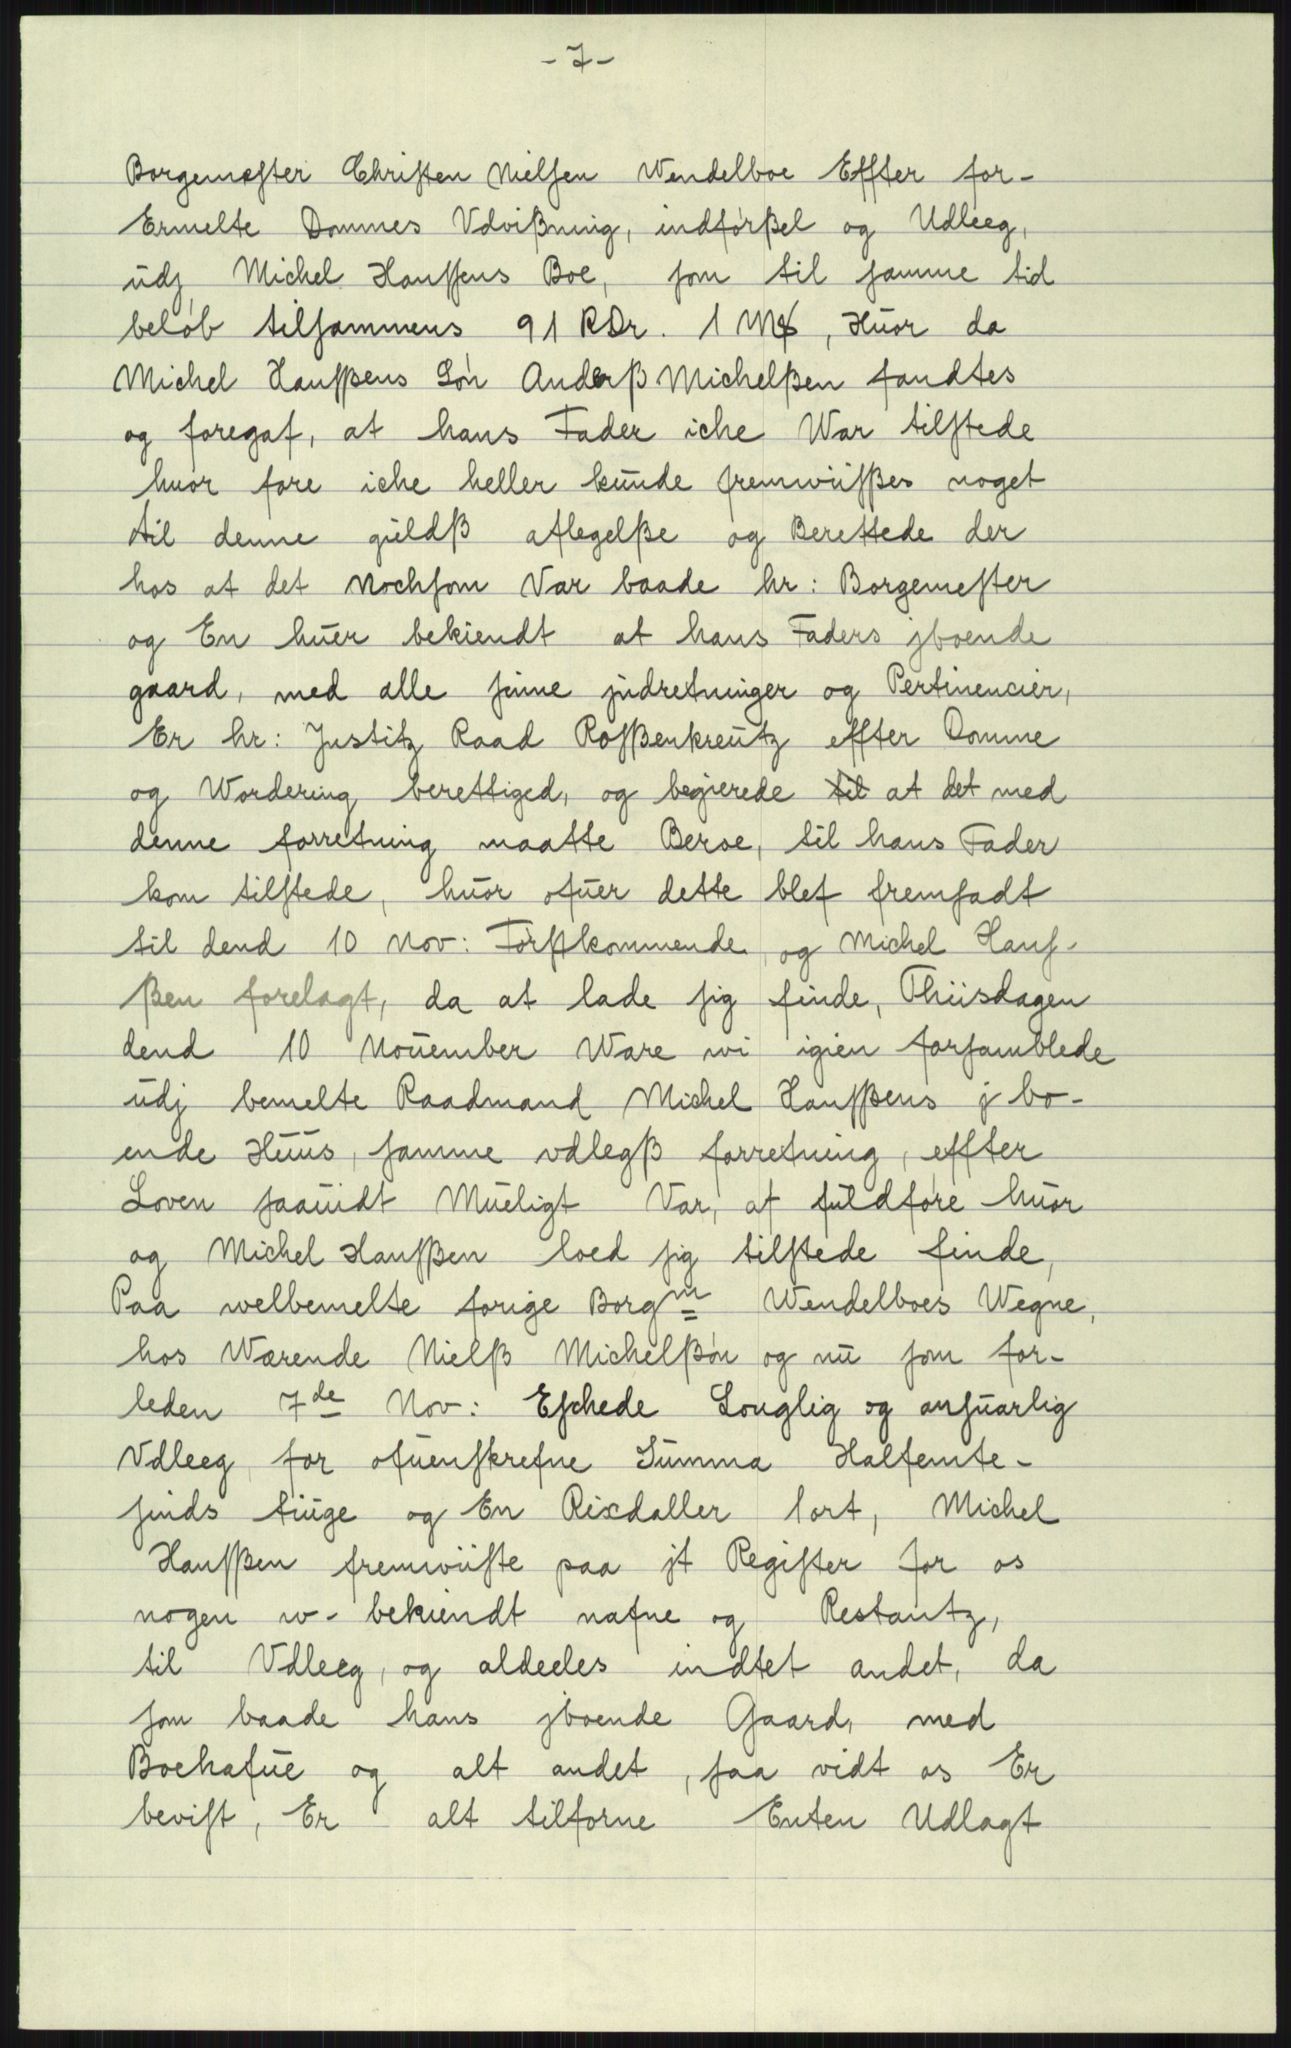 - 7 -
Borgemester Christen Nielsen Wendelboe Effter for-
Ermelte Dommes Vdvißning, indförßel og Udleeg,
udj Michel Hanssens Boe, som til samme tid
belöb tilsammens 91 RDr. 1 M$, Huor da
Michel Hansßens Sön Anderß Michelßen fandtes
og foregaf, at hans Fader iche War tilstede
huor fore iche heller kunde fremwiisßes noget
til denne giældß aflegelße og Berettede der
hos at det Nochsom Var baade hr: Borgemester
og En huer bekiendt at hans Faders jboende
gaard, med alle sinne jndretninger og Pertinencier,
Er hr: Justitz Raad Rosßenkreutz effter Domme
og Wordering berettiged, og begierede at det med
denne forretning maatte Beroe, til hans Fader
kom tilstede, huor ofuer dette blef fremsadt
til dend 10 Nov: Förstkommende, og Michel Hans-
ßen forelagt, da at lade sig finde, Thiisdagen
dend 10 November Ware wi igien forsamblede
udj bemelte Raadmand Michel Hansßens j bo-
ende Huus, samme vdlegß forretning, effter
Loven saauidt Mueligt Var, at fuldföre huor
og Michel Hansßen loed sig tilstede finde,
Paa welbemelte forige Borgm Wendelboes Wegne,
hos Wærende Nielß Michelßön og nu som for-
leden 7de Nov: Eschede Louglig og ansuarlig
Vdleeg for ofuenskrefne Summa Halfemte-
sinds tiuge og En Rixdaller 1 ort, Michel
Hansßen fremwiiste paa jt Register for os
nogen w-bekiendt nafne og Restantz,
til Vdleeg, og aldeeles indtet andet, da
som baade hans jboende Gaard, med
Boehafue og alt andet, saa vidt os Er
bevist, Er alt tilforne Enten Udlagt